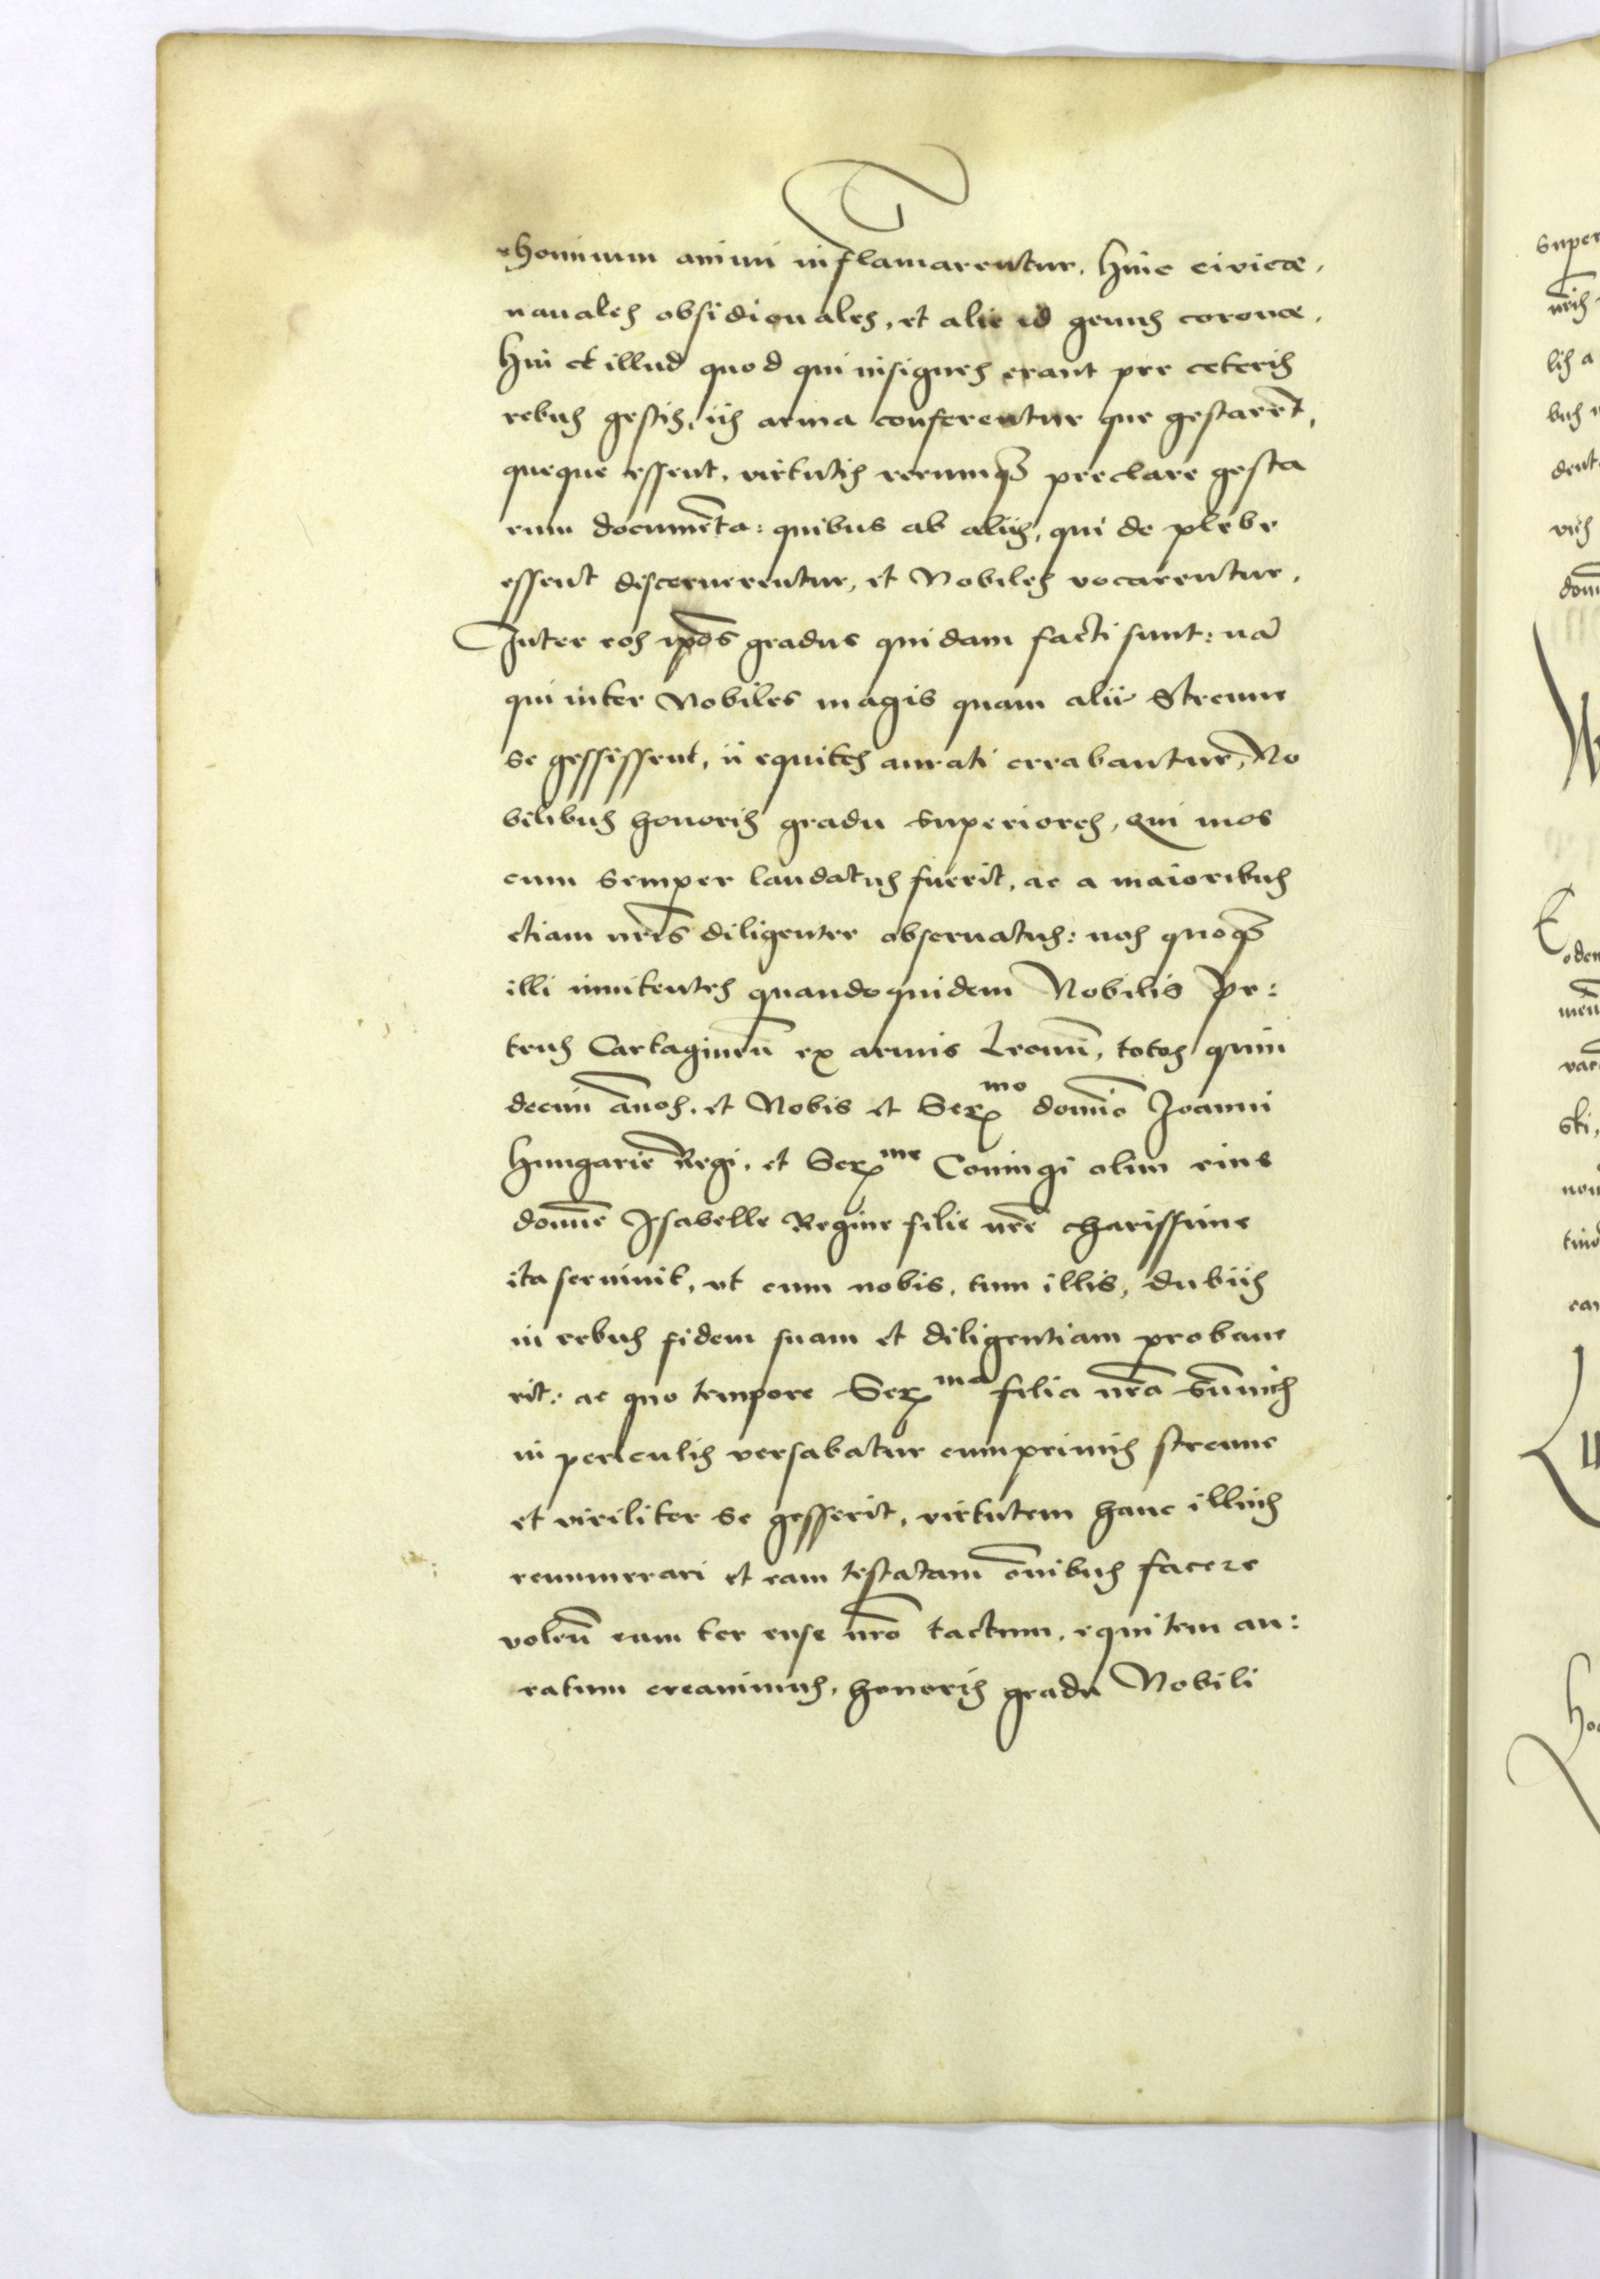 hominum animi inflamarentur. Hinc civicæ,
navales obsidionales, et alie id genus coronæ.
Hinc et illud quod qui insignes erant pre ceteris
rebus gestis, iis arma conferentur que gestarēt,
queque essent, virtutis rerumq̄ preclare gesta
rum documēta: quibus ab aliis, qui de plebe
essent discernerentur, et Nobiles vocarentur.
Inter eos ip̄os gradus quidam facti sunt: nā
qui inter Nobiles magis quam alii Strenue
se gessissent, ii equites aurati creabantur, No
bilibus honoris gradu superiores, Qui mos
cum semper laudatus fuerit, ac a maioribus
etiam nr̄is diligenter observatus: nos quoq̄
illi innitentes quandoquidem Nobilis Pe:
trus Cartaginen̄ ex armis Leonū, totos quin
decim an̄os, et Nobis et Serᵐᵒ domīo Joanni
Hungarie Regi, et Serᵐᵉ Coniugi olim eius
domīe Isabelle Regine filie nr̄e charissime
ita servivit, ut cum nobis, tum illis, dubiis
in rebus fidem suam et diligentiam probave
rit: ac quo tempore Serᵐᵃ filia nr̄a sum̄is
in periculis versabatur cumprimis strenue
et viriliter se gesserit, virtutem hanc illius
renumerari et eam testatam om̄ibus facere
volen̄ eum ter ense nr̄o tactum, equitem au:
ratum creavimus, honoris gradu Nobili
super
nr̄is
lis a
bus
dent
viis
Eodem
men̄
ski,